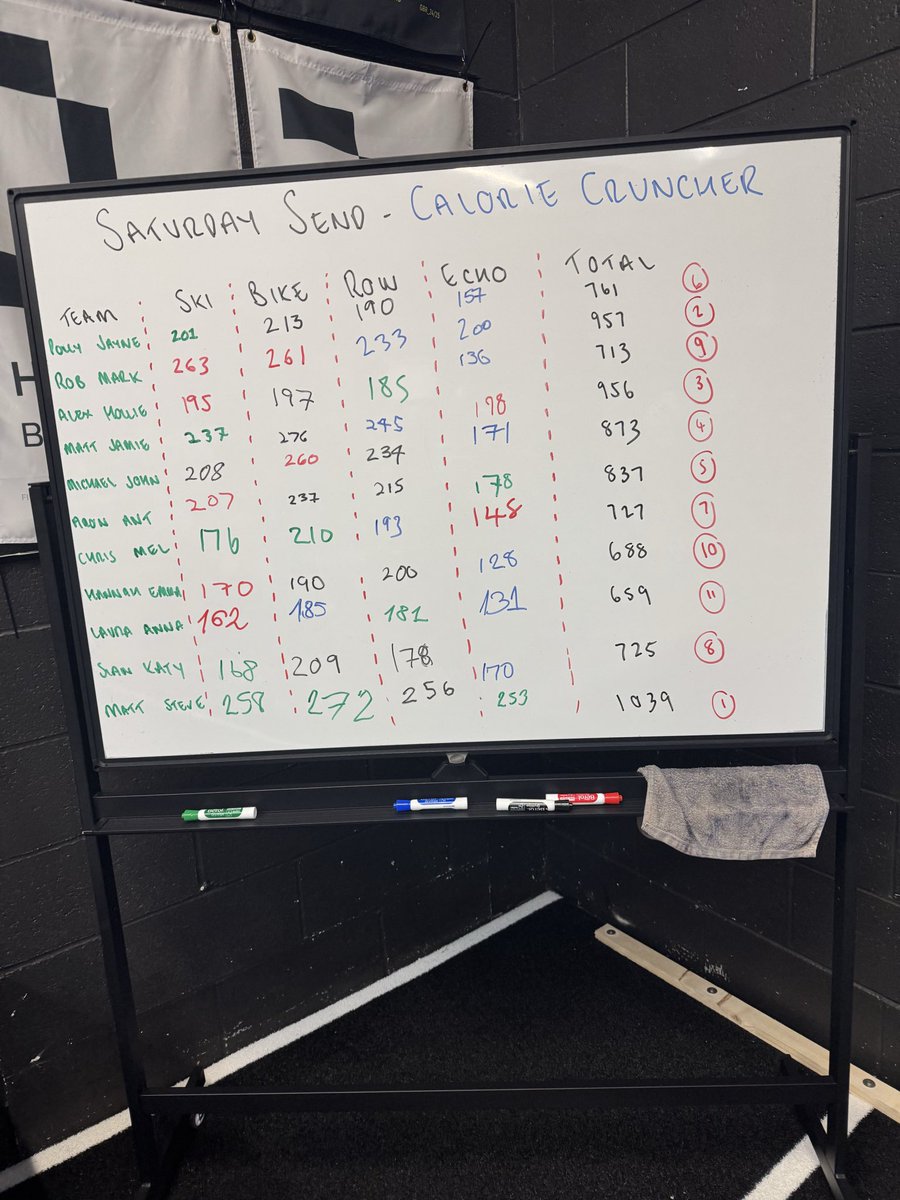 GBR_24/25
SATURDAY SEND - CALORIE CRUNCHER
TEAM SKI BIKE ROW ECHO TOTAL
POLLY JAYNE 201 213 190 157 761 6
ROB MARK 263 261 233 200 957 2
ALEX HOLLIE 195 197 185 136 713 9
MATT JAMIE 237 276 245 198 956 3
MICHAEL JOHN 208 260 234 171 873 4
ARON ANT 207 237 215 178 837 5
CHRIS MEL 176 210 193 148 727 7
HANNAH EMMA 170 190 200 128 688 10
LAURA ANNA 162 185 181 131 659 11
SIAN KATY 168 209 178 170 725 8
MATT STEVE 258 272 256 253 1039 1
H
B